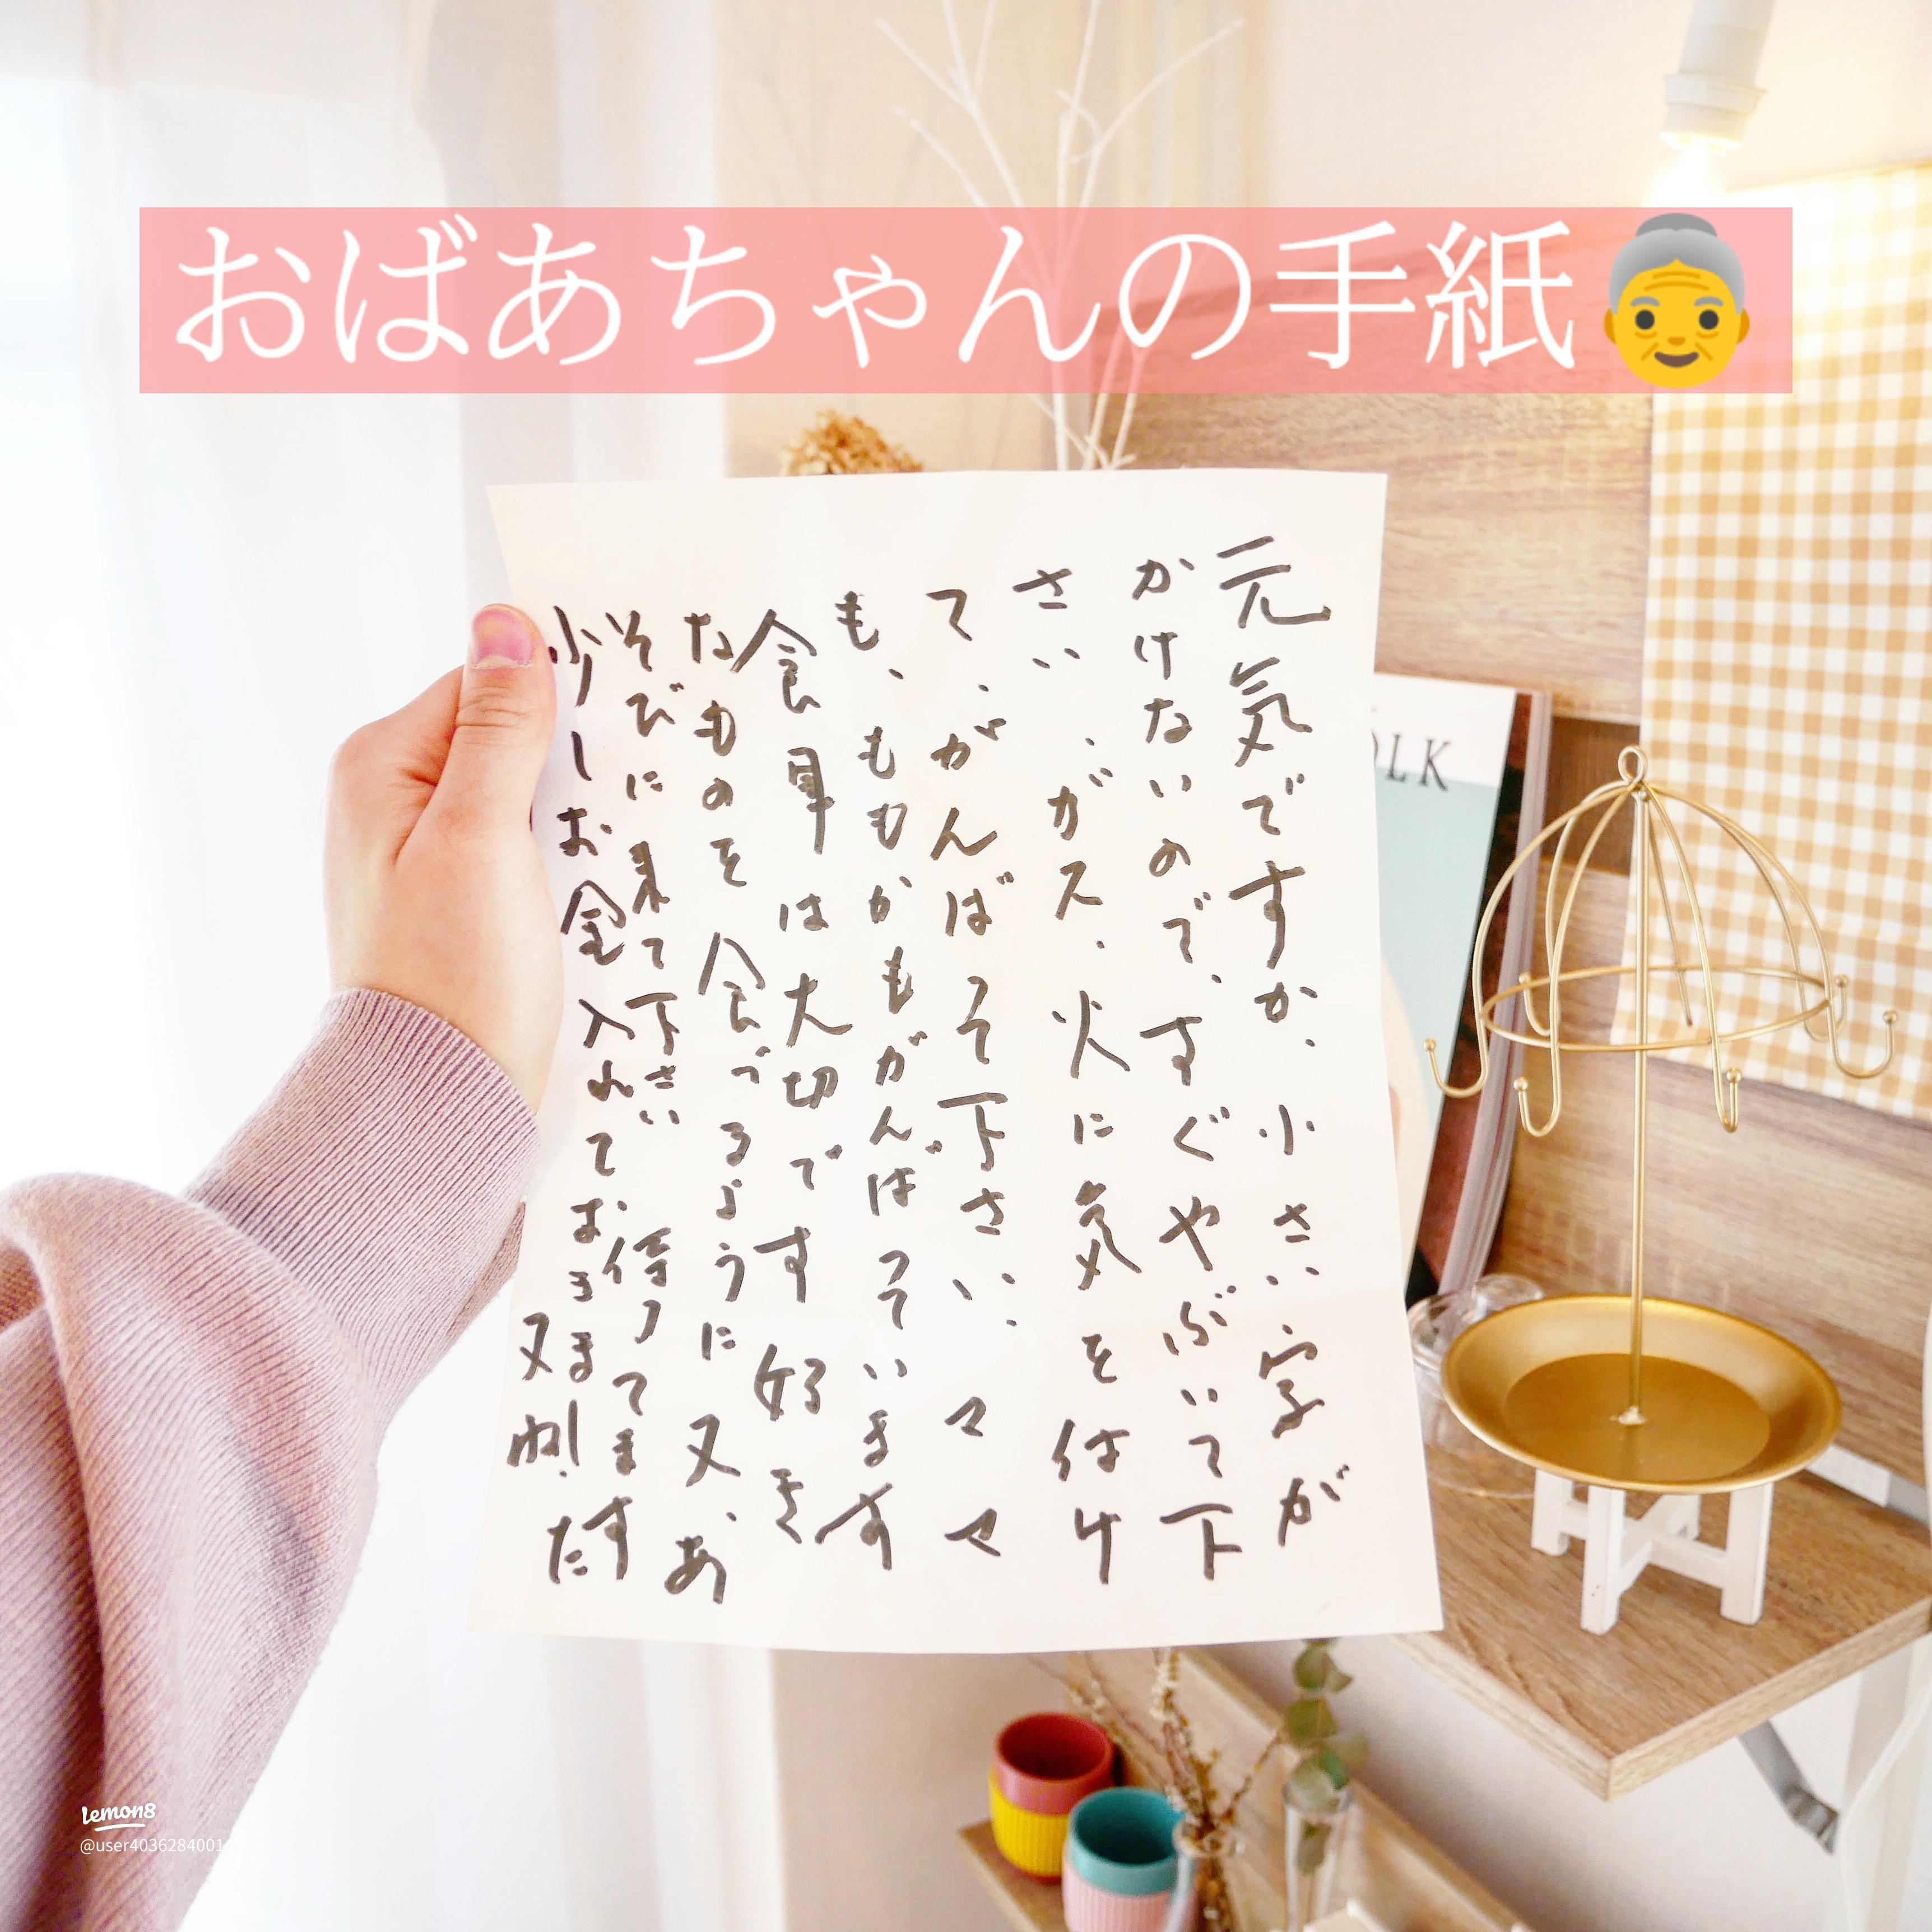 おばあちゃんの手紙👵
元気ですか、小さい字が
かけないので、すぐやぶいて下
さい、ガス、火に気を付け
て、がんばって下さい、ママ
も、ももかもがんばっています
食事は大切です好き
なものを食べるように又、あ
そびに来て下さい待ってます
少しお金入れておきます
又ね!
OLK
lemon8